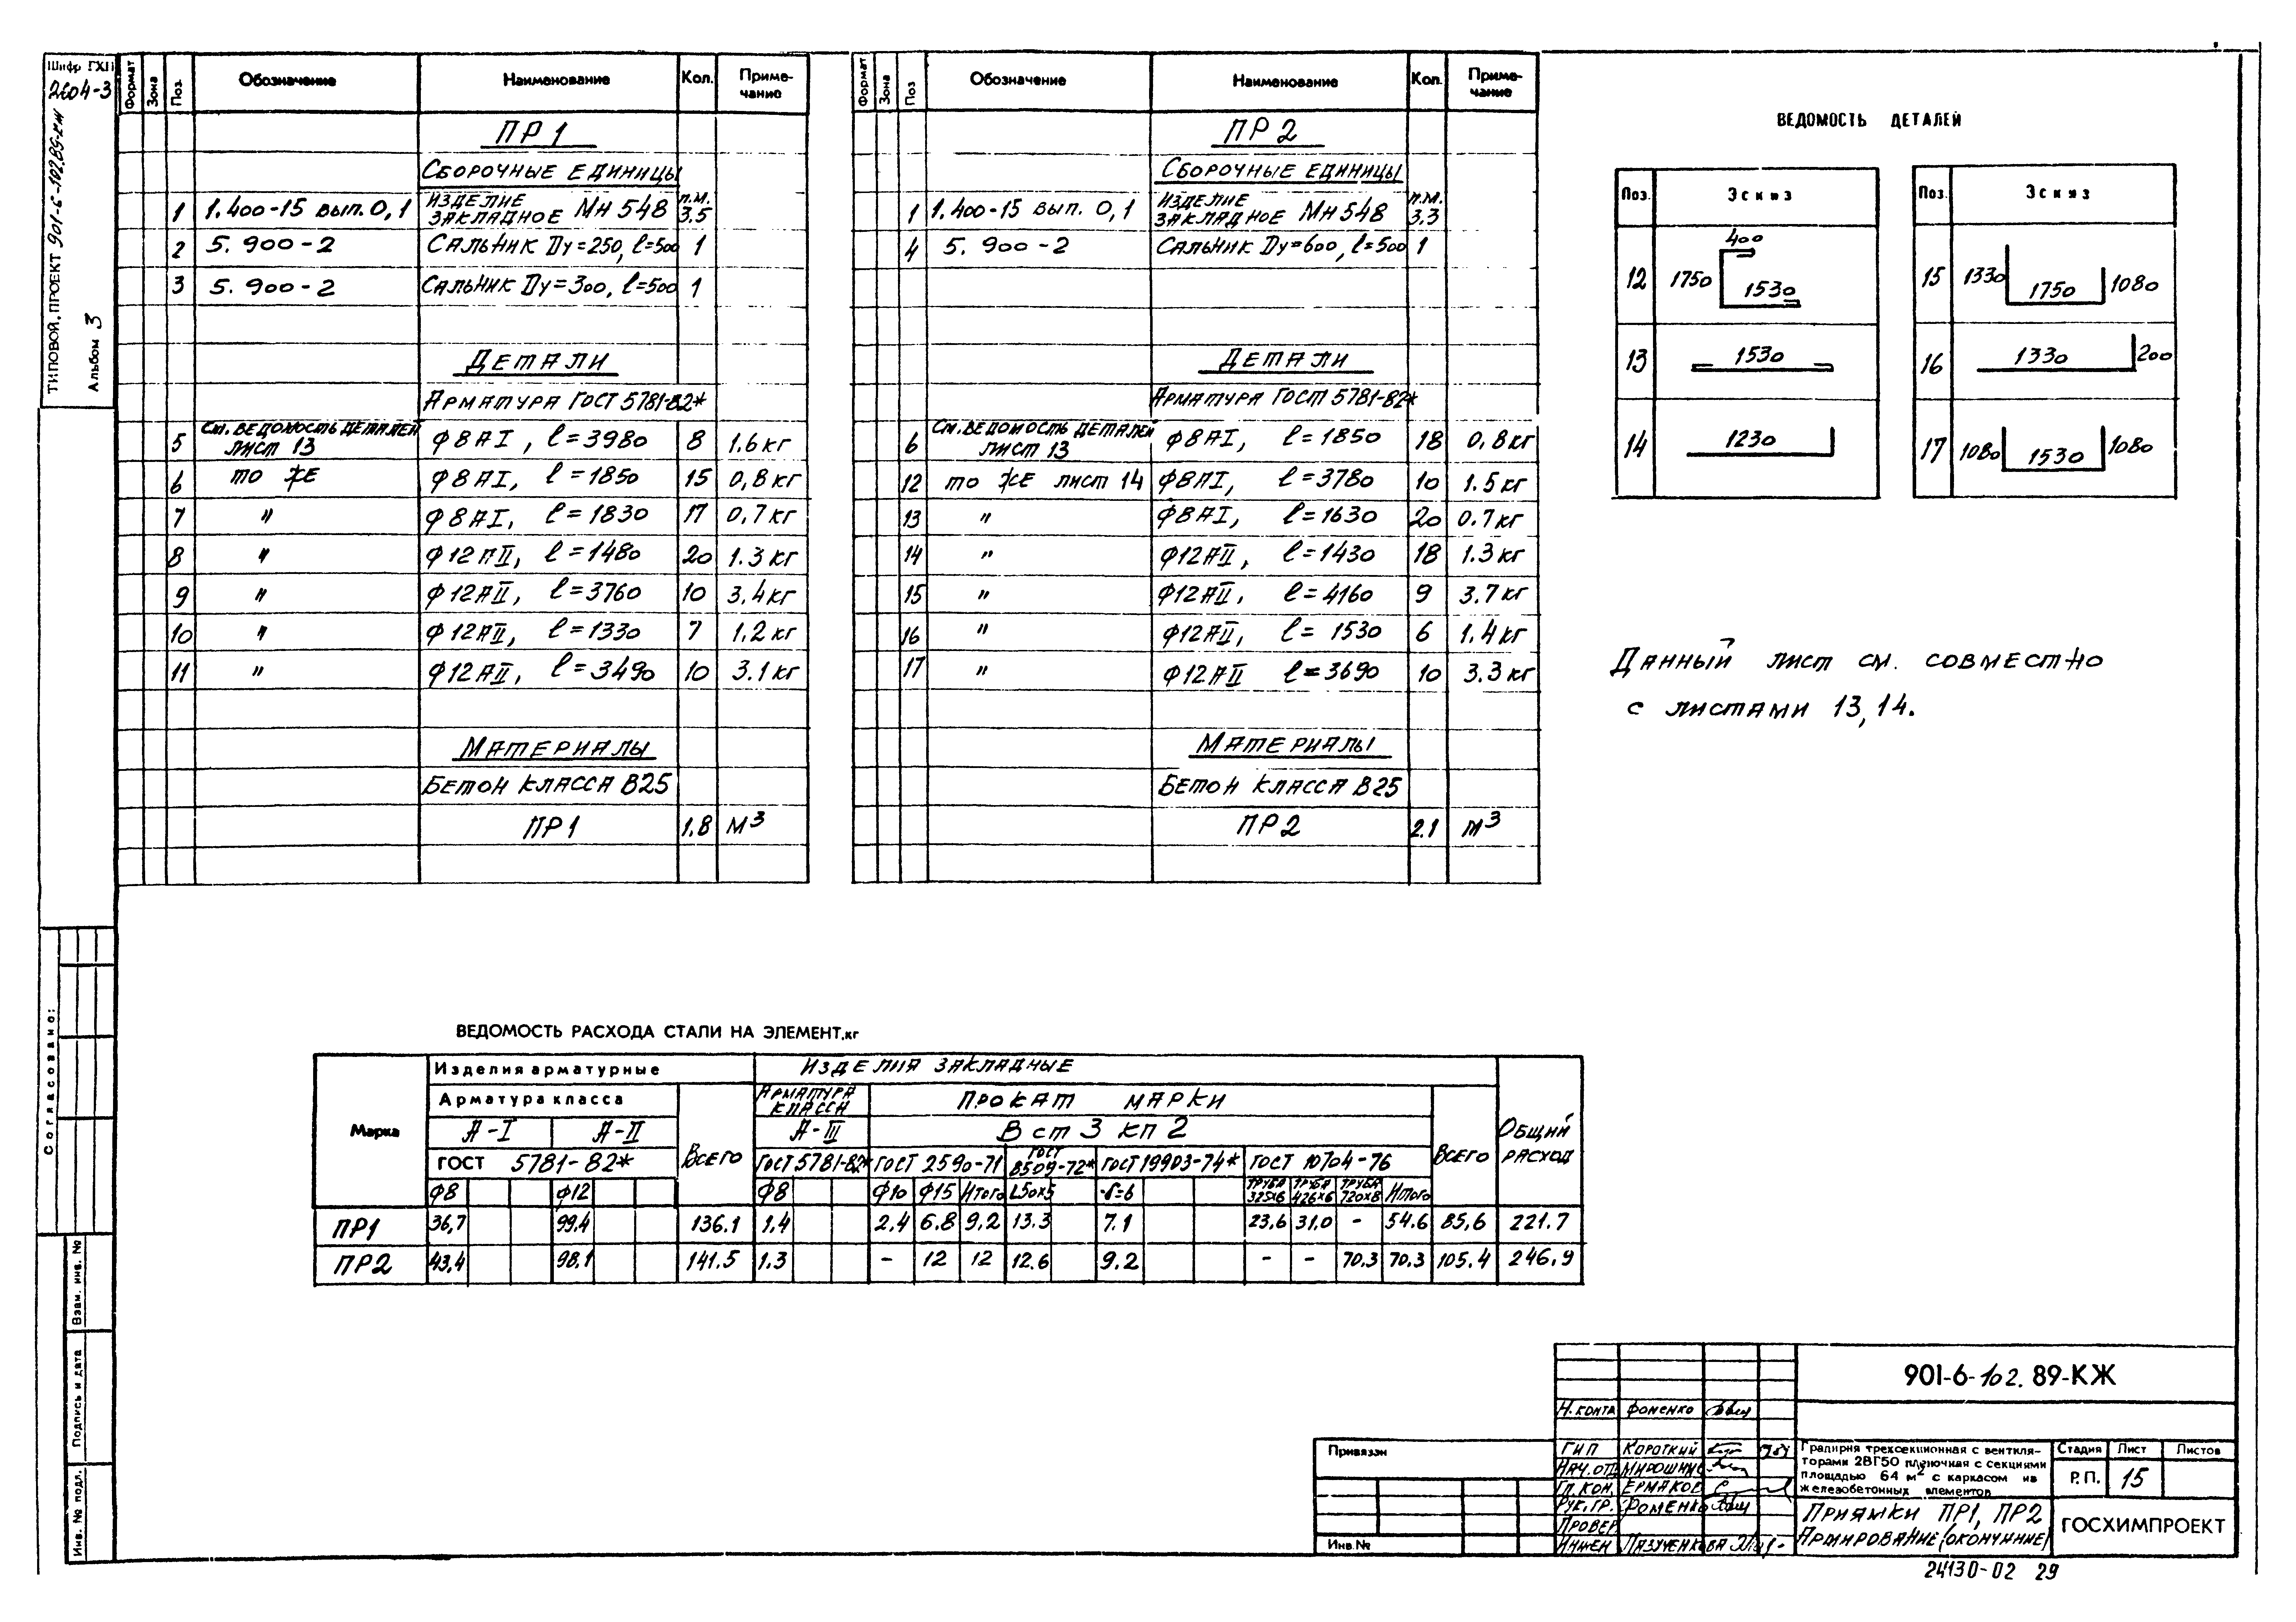 Шифр ГХП
2604-3
ТИПОВОЙ ПРОЕКТ 901-6-102.89-КЖ
Альбом 3
Формат Зона Поз. Обозначение Наименование Кол. Примечание
ПР1
СБОРОЧНЫЕ ЕДИНИЦЫ
1 1.400-15 вып. 0,1 ИЗДЕЛИЕ ЗАКЛАДНОЕ МН 548 п.м. 3.5
2 5.900-2 САЛЬНИК Dу=250, ℓ=500 1
3 5.900-2 САЛЬНИК Dу=300, ℓ=500 1
ДЕТАЛИ
АРМАТУРА ГОСТ 5781-82*
5 См. ВЕДОМОСТЬ ДЕТАЛЕЙ ЛИСТ 13 Ф8АI, ℓ=3980 8 1.6 кг
6 ТО ЖЕ Ф8АI, ℓ=1850 15 0,8 кг
7 " Ф8АI, ℓ=1830 17 0,7 кг
8 " Ф12АII, ℓ=1480 20 1.3 кг
9 " Ф12АII, ℓ=3760 10 3,4 кг
10 " Ф12АII, ℓ=1330 7 1.2 кг
11 " Ф12АII, ℓ=3490 10 3.1 кг
МАТЕРИАЛЫ
БЕТОН КЛАССА В25
ПР1 1.8 М³
Формат Зона Поз Обозначение Наименование Кол. Примечание
ПР2
СБОРОЧНЫЕ ЕДИНИЦЫ
1 1.400-15 вып. 0,1 ИЗДЕЛИЕ ЗАКЛАДНОЕ МН 548 п.м. 3.3
4 5.900-2 САЛЬНИК Dу=600, ℓ=500 1
ДЕТАЛИ
АРМАТУРА ГОСТ 5781-82*
6 См. ВЕДОМОСТЬ ДЕТАЛЕЙ ЛИСТ 13 Ф8АI, ℓ=1850 18 0,8 кг
12 ТО ЖЕ ЛИСТ 14 Ф8АI, ℓ=3780 10 1.5 кг
13 " Ф8АI, ℓ=1630 20 0.7 кг
14 " Ф12АII, ℓ=1430 18 1.3 кг
15 " Ф12АII, ℓ=4160 9 3.7 кг
16 " Ф12АII, ℓ=1530 6 1.4 кг
17 " Ф12АII ℓ=3690 10 3.3 кг
МАТЕРИАЛЫ
БЕТОН КЛАССА В25
ПР2 2.1 М³
ВЕДОМОСТЬ ДЕТАЛЕЙ
Поз. Эскиз
12 400 1750 1530
13 1530
14 1230
Поз. Эскиз
15 1330 1750 1080
16 1330 200
17 1080 1530 1080
ДАННЫЙ ЛИСТ СМ. СОВМЕСТНО
С ЛИСТАМИ 13, 14.
ВЕДОМОСТЬ РАСХОДА СТАЛИ НА ЭЛЕМЕНТ, кг
Марка Изделия арматурные ИЗДЕЛИЯ ЗАКЛАДНЫЕ ОБЩИЙ РАСХОД
Арматура класса ВСЕГО АРМАТУРА КЛАССА ПРОКАТ МАРКИ ВСЕГО
А-I А-II А-III В ст 3 кп 2
ГОСТ 5781-82* ГОСТ 5781-82* ГОСТ 2590-71 ГОСТ 8509-72* ГОСТ 19903-74* ГОСТ 10704-76
Ф8 Ф12 Ф8 Ф10 Ф15 Итого L50×5 -δ=6 ТРУБА 325×6 ТРУБА 426×6 ТРУБА 720×8 Итого
ПР1 36,7 99.4 136.1 1,4 2,4 6.8 9,2 13.3 7.1 23,6 31.0 - 54.6 85,6 221.7
ПР2 43,4 98,1 141.5 1.3 - 12 12 12.6 9.2 - - 70.3 70.3 105.4 246,9
Согласовано:
Взам. инв. №
Подпись и дата
Инв. № подл.
Привязан
Инв.№
901-6-102.89-КЖ
Н. КОНТР ФОМЕНКО
ГИП КОРОТКИЙ
НАЧ. ОТД
ГЛ. КОН. ЕРМАКОВ
РУК. ГР. ФОМЕНКО
ПРОВЕР.
ИНЖЕН ЛАЗУЧЕНКОВА
Градирня трехсекционная с вентиля-
торами 2ВГ50 пленочная с секциями
площадью 64 м² с каркасом из
железобетонных элементов
Стадия Лист Листов
Р.П. 15
ПРИЯМКИ ПР1, ПР2
АРМИРОВАНИЕ (ОКОНЧАНИЕ)
ГОСХИМПРОЕКТ
24130-02 29